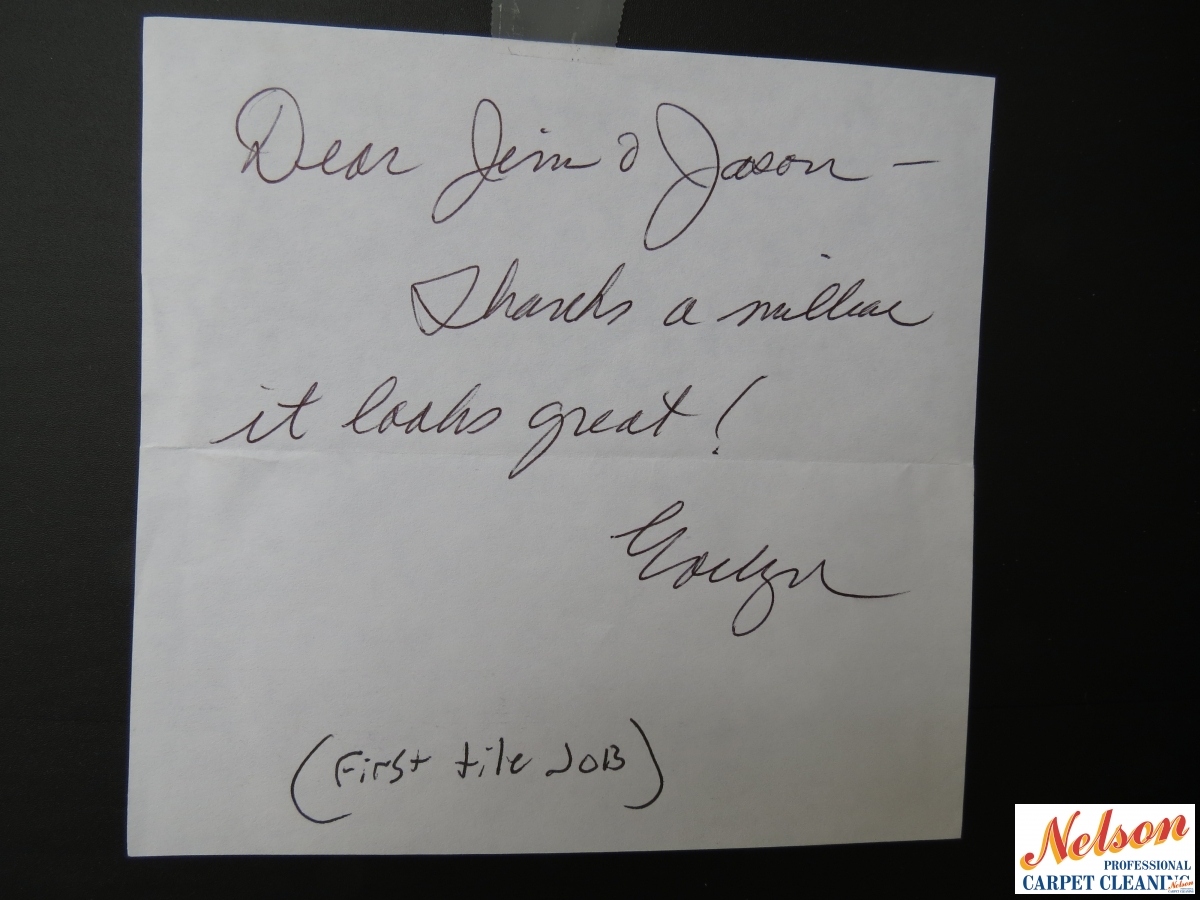 Dear Jim & Jason —
Thanks a million
it looks great!
Evelyn
(First tile JOB)
Nelson
PROFESSIONAL
CARPET CLEANING
Nelson